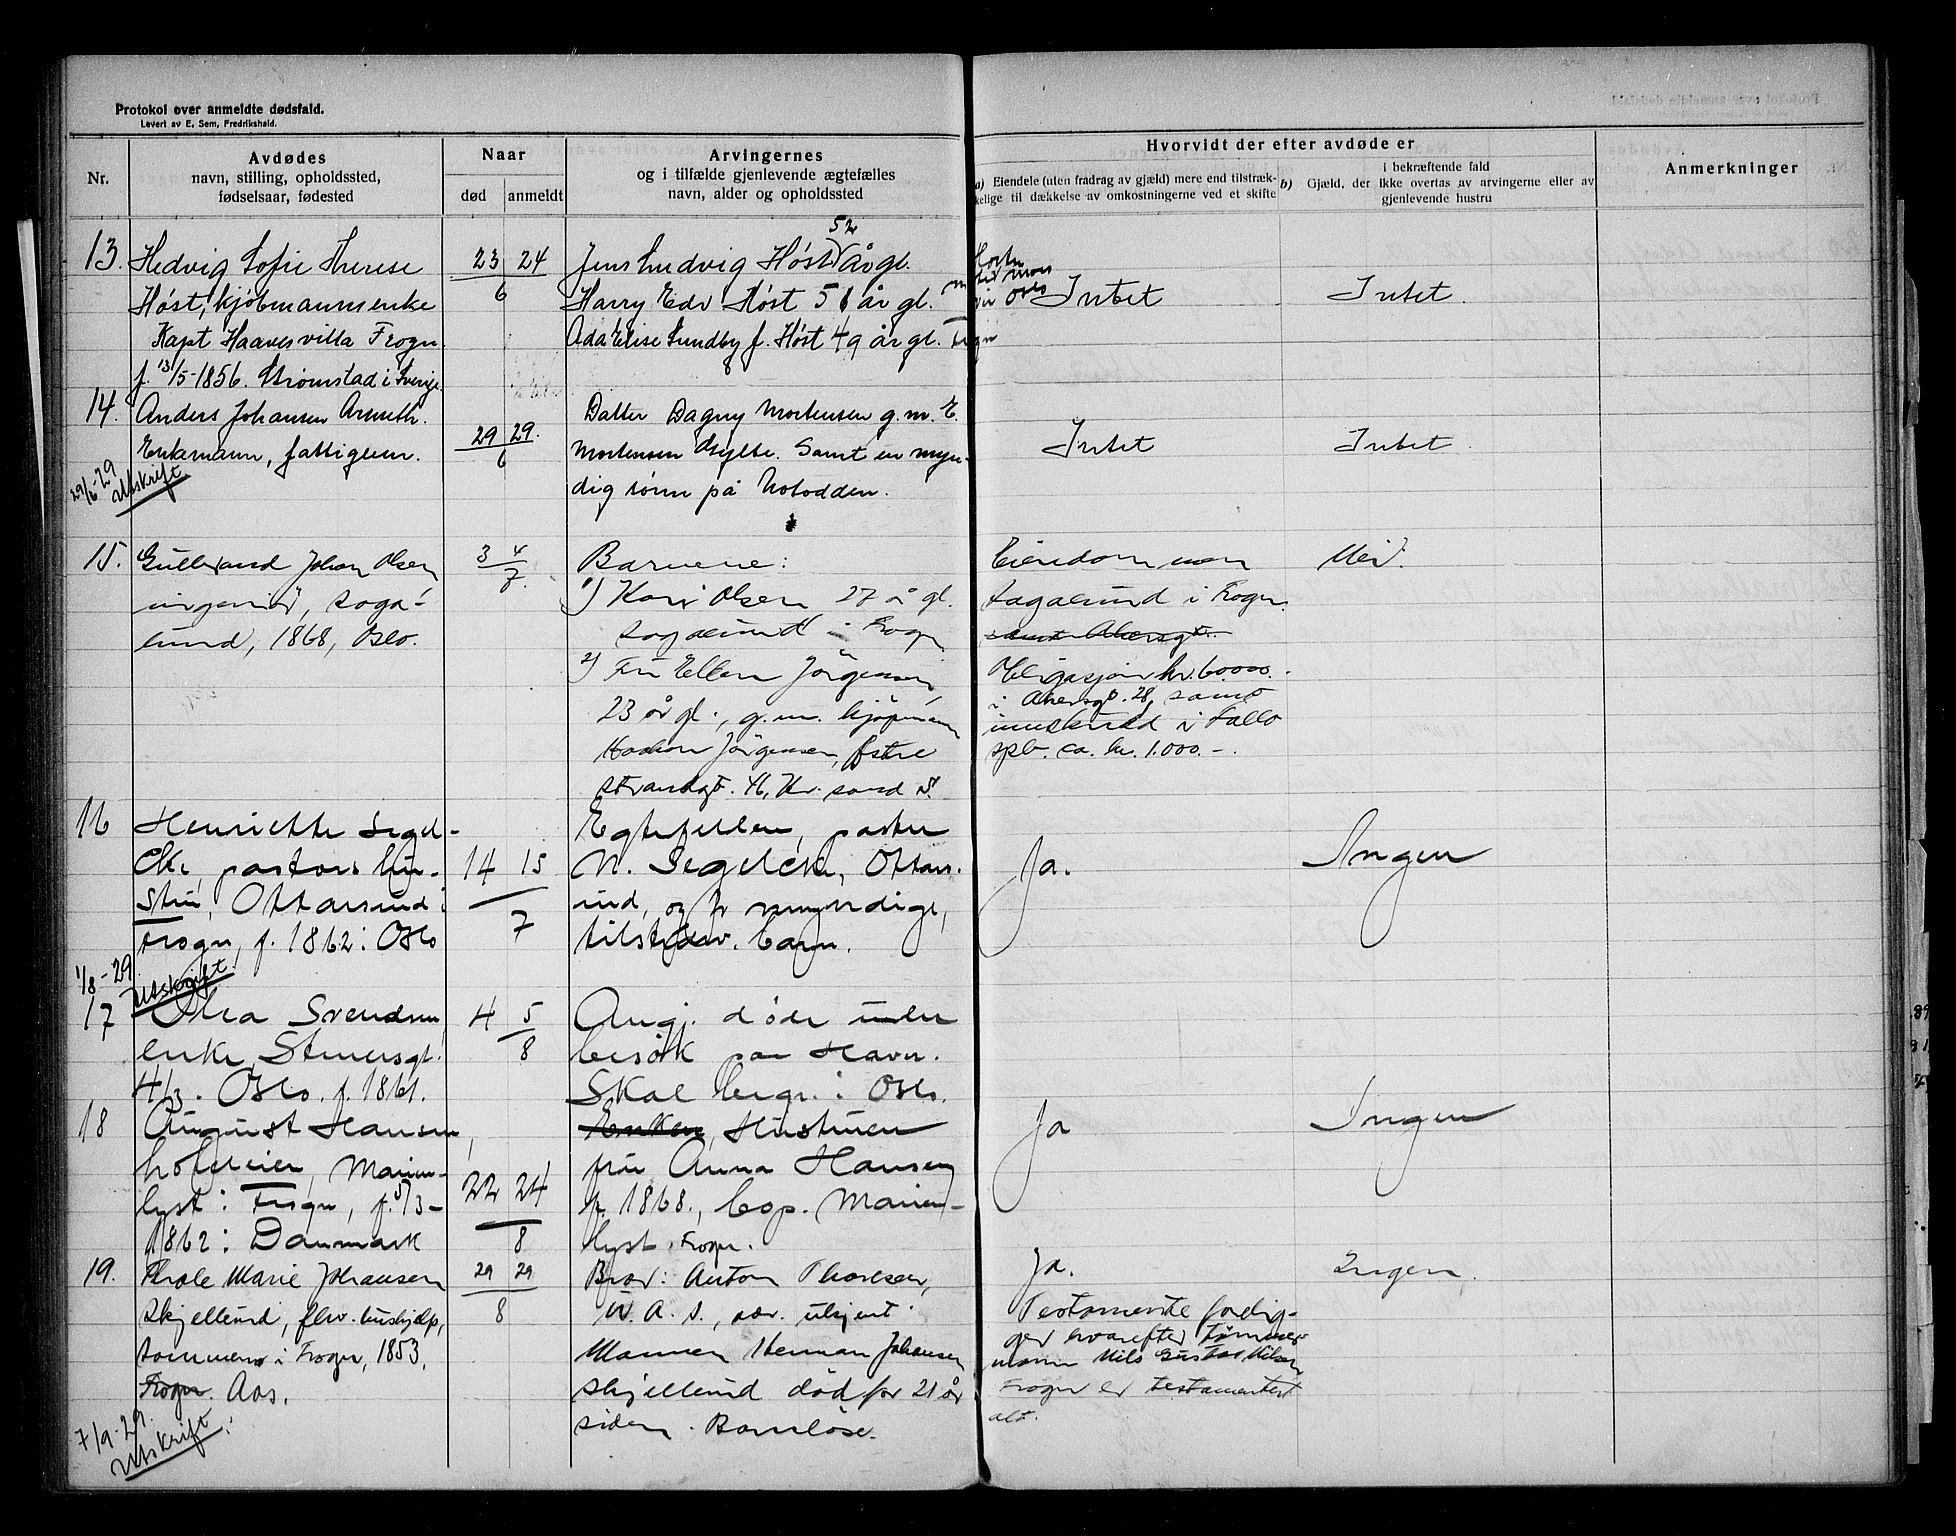 Protokol over anmeldte dødsfald.
Levert av E. Sem, Fredrikshald.
Nr.
Avdødes
navn, stilling, opholdssted,
fødselsaar, fødested
Naar
død anmeldt
Arvingernes
og i tilfælde gjenlevende ægtefælles
navn, alder og opholdssted
Hvorvidt der efter avdøde er
a) Eiendele (uten fradrag av gjæld) mere end tilstræk-
kelige til dækkelse av omkostningerne ved et skifte
b) Gjæld, der i bekræftende fald
ikke overtas av arvingerne eller av
gjenlevende hustru
Anmerkninger
13. Hedvig Sofie Therese
Høst, kjøbmannsenke
Kapt Haaves villa Frogn
f. 13/5-1856. Strømstad i Sverige
23 24
6
52
Jens Ludvig Høst år gl.
Harry Edv Høst 51 år gl. Oslo
Ada Elise Sundby f. Høst 49 år gl.
Intet
Intet.
14. Anders Johansen
Enkemann, fattiglem.
29/6-29
Utskrift
29 29.
6
Datter Dagny Mortensen g.m. E.
Mortensen Samt en myn-
dig sønn på Notodden.
Intet
Intet
15. Gulbrand Johan Olsen
ingeniør, Saga-
lund, 1868, Oslo.
3 4
7.
Barnene:
1) Kari Olsen, 27 år gl.
Sagalund i Frogn
2) Fru Ellen Jörgensen
23 år gl., g.m. kjöpmann
Haakon Jörgensen, Østre
Strandgt. 46, Kr. sand S.
Eiendommen
Sagalund i Frogn.
samt Akersgt.
Obligasjon kr. 6000.-
i Akersgt. 28, samt
innskudd i Follo
spb. ca. kr. 1.000.-.
Nei.
16 Henriette Segel-
cke, pastors hu-
stru, Ottarsund i
Frogn, f. 1862 i Oslo
1/8-29
Utskrift.
14 15
7
Egtefellen, pastor
N. Segelcke, Ottar-
sund, og myndige,
tilstedev. barn.
Ja.
Ingen
17 Thea Svendsen
enke, Stenersgt.
Oslo. f. 1861.
4 5
8
Ang. döde under
besök paa Haver.
Skal begr. i Oslo.
18 August Hansen,
hoteleier, Marien-
lyst i Frogn, f. 5/3-
1862 i Danmark
22 24
8
Enken, Hustruen
fru Anna Hansen
f. 1868., bop. Marien-
lyst, Frogn.
Ja
Ingen
19. Thale Marie Johansen
Skjellerud, fhv. hushjelp,
i Frogn, 1853,
Frogn. Aas.
7/9-29.
Utskrift.
29 29
8
Bror: Anton Thoresen,
U.S.A., adr. ukjent.
Mannen Herman Johansen
Skjellerud död for 21 år
siden. Barnlöse.
Ja.
Testamente forelig-
ger hvorefter tömmer-
mann Nils Gustav Nilsen
Frogn er testamentert
alt.
Ingen.